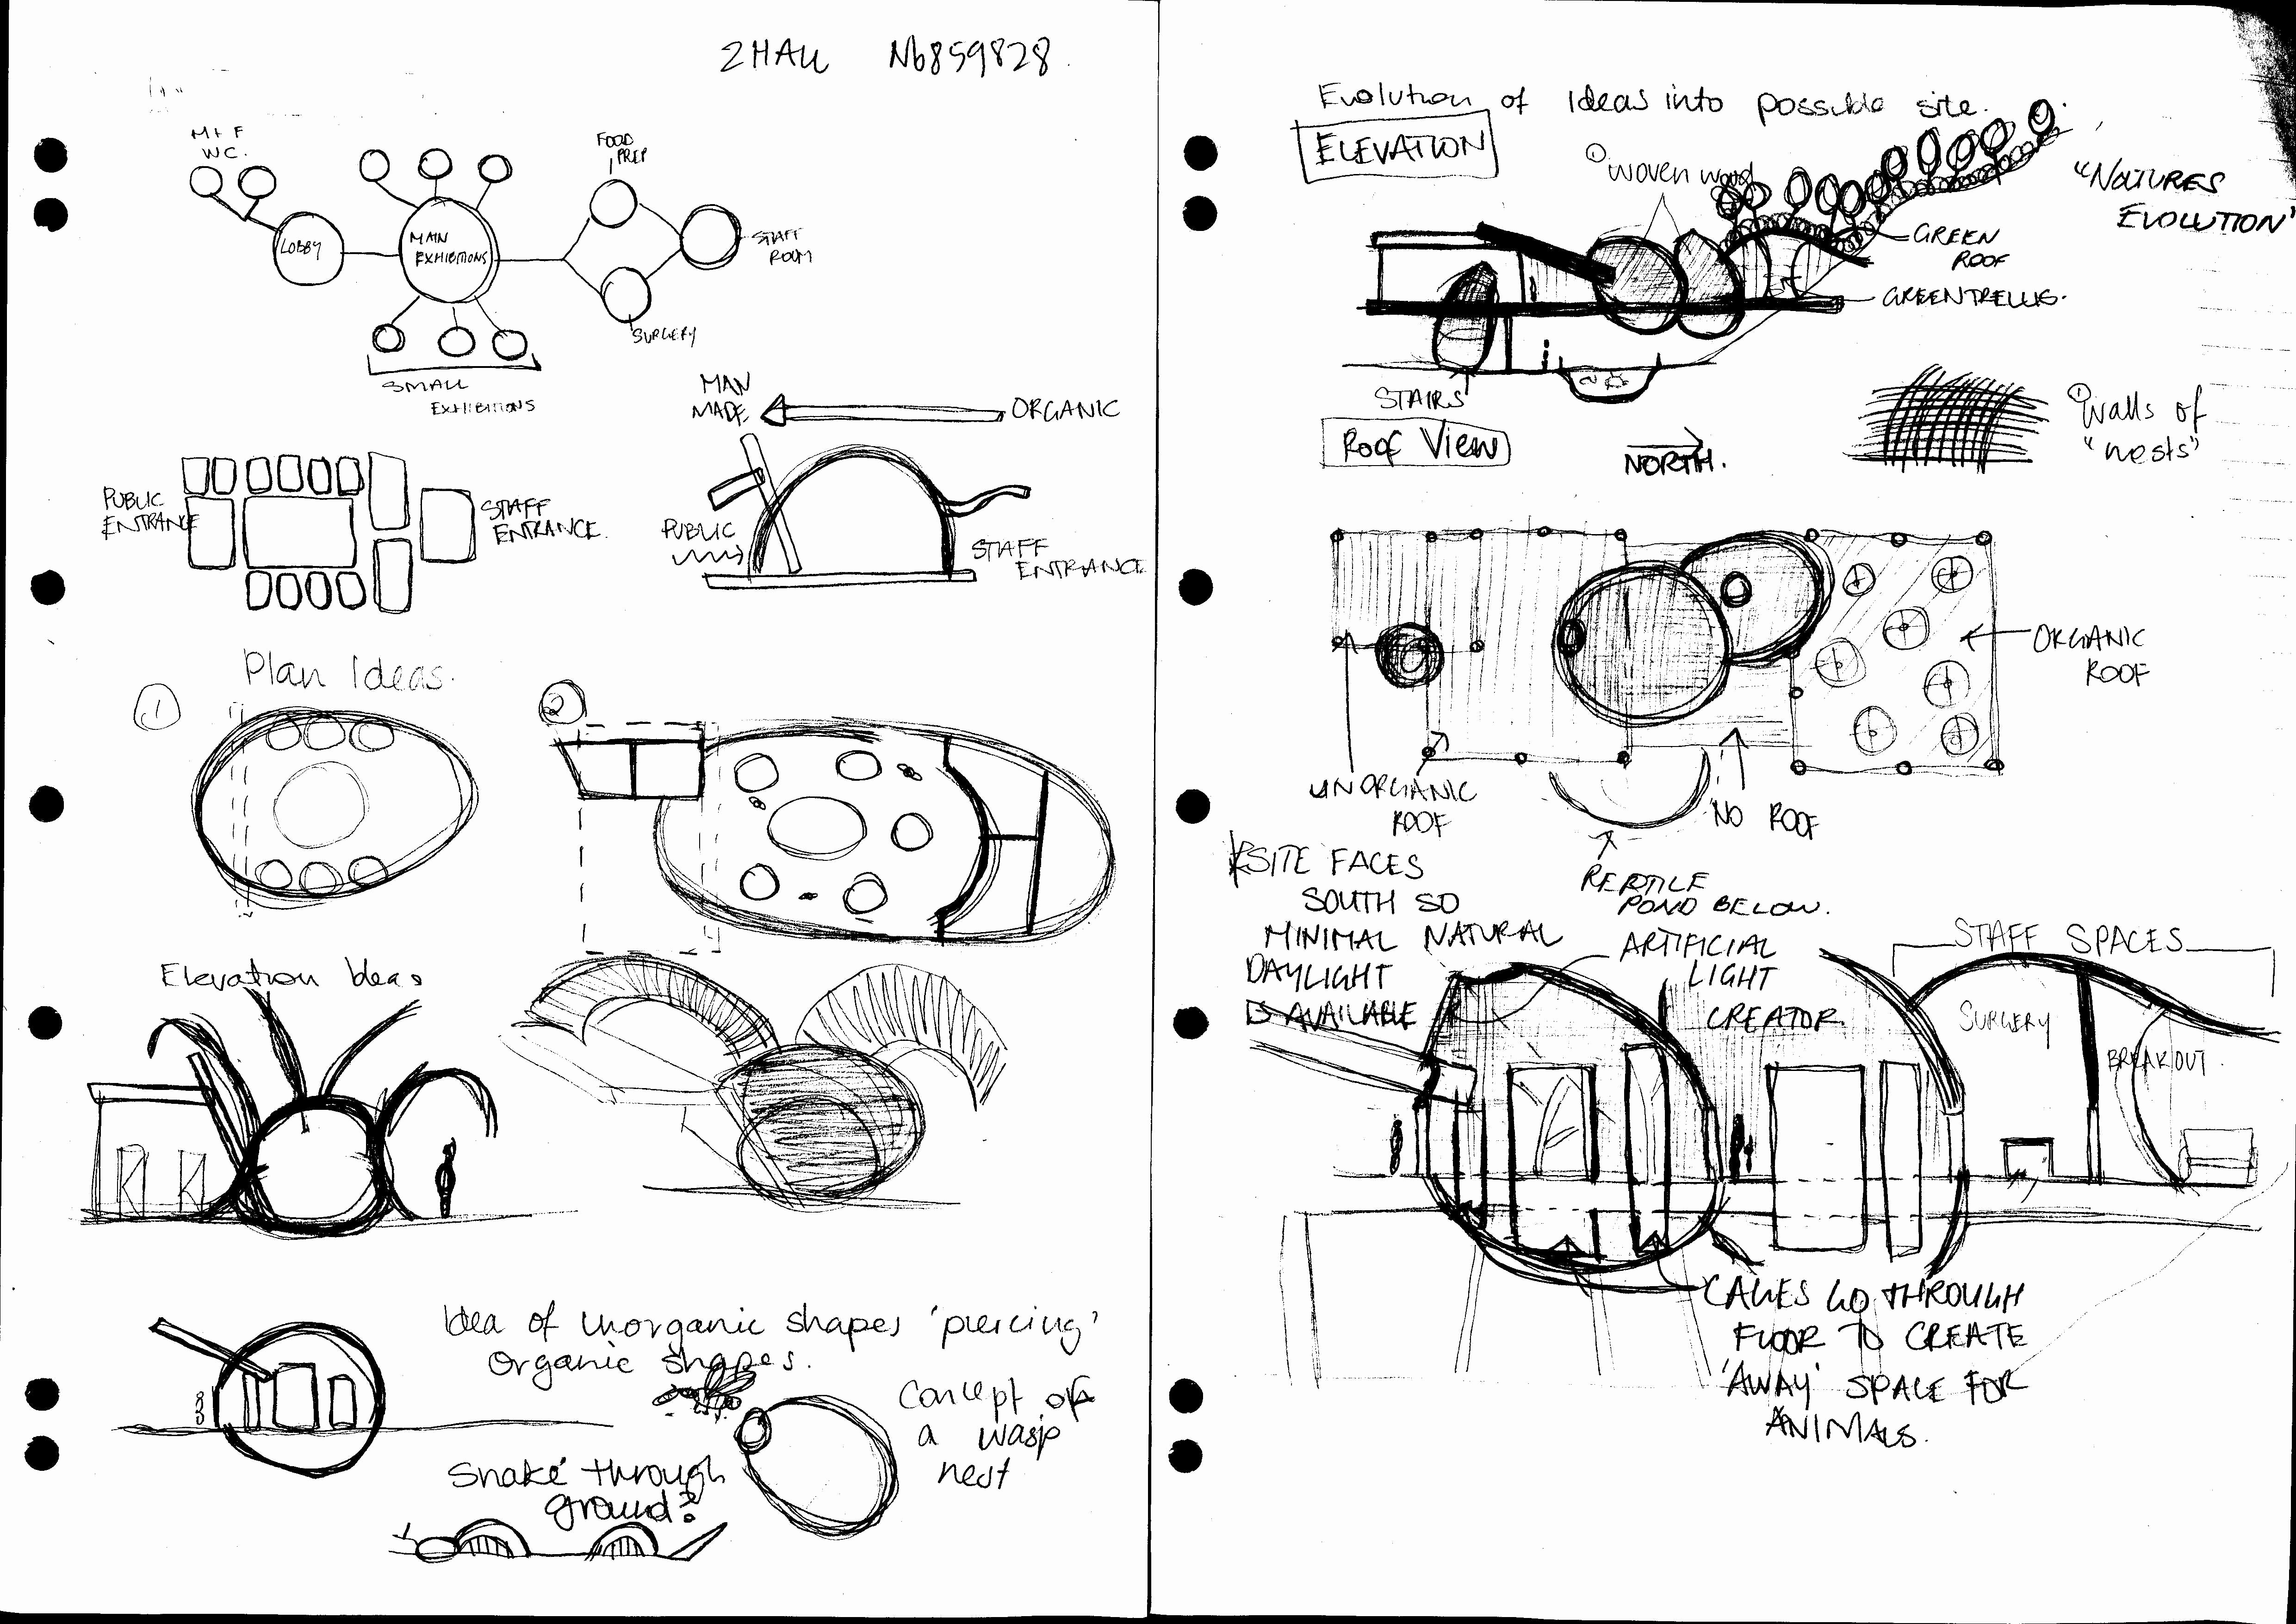 ZHALL N6859828
M+F
WC.
FOOD
PREP
LOBBY
MAIN
EXHIBITIONS
STAFF
ROOM
SURGERY
SMALL
EXHIBITIONS
MAN
MADE.
ORGANIC
PUBLIC
ENTRANCE
STAFF
ENTRANCE.
PUBLIC
STAFF
ENTRANCE
Plan Ideas.
1
2
Elevation Ideas
Idea of inorganic shapes 'piercing'
organic shapes.
Concept of
a wasp
nest
Snake through
ground?
Evolution of Ideas into possible site.
ELEVATION
① woven wood
"NATURES
EVOLUTION"
GREEN
ROOF
GREEN TRELLIS.
STAIRS
① Walls of
"nests"
Roof View
NORTH.
ORGANIC
ROOF
UNORGANIC
ROOF
NO ROOF
REPTILE
POND BELOW.
SITE FACES
SOUTH SO
MINIMAL NATURAL
DAYLIGHT
IS AVAILABLE
ARTIFICIAL
LIGHT
CREATOR
STAFF SPACES
SURGERY
BREAKOUT.
CAGES GO THROUGH
FLOOR TO CREATE
'AWAY' SPACE FOR
ANIMALS.